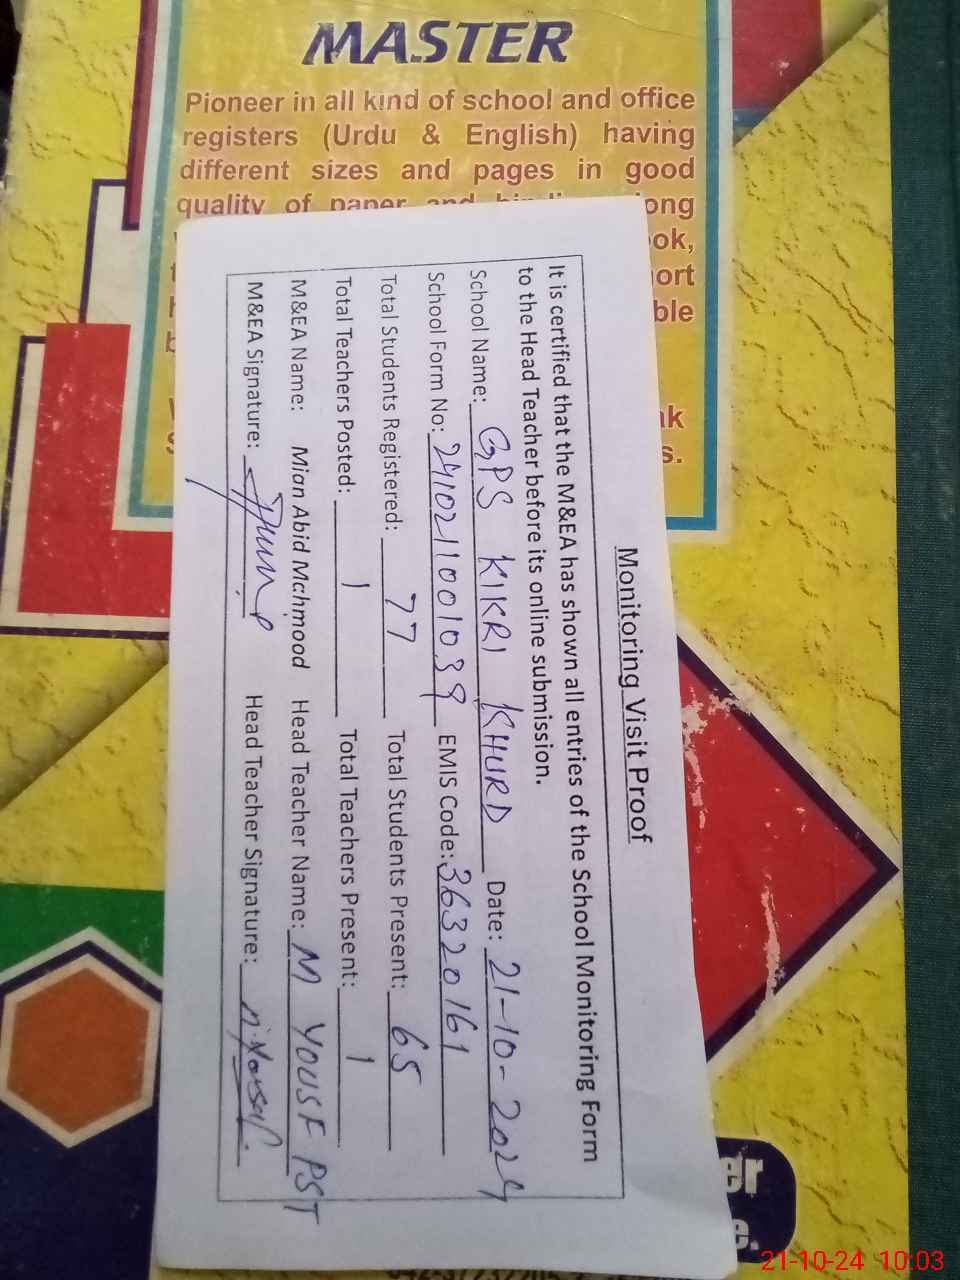 MASTER
Pioneer in all kind of school and office
registers (Urdu & English) having
different sizes and pages in good
quality of paper and
ong
ok,
ort
ble
s.
Monitoring Visit Proof
It is certified that the M&EA has shown all entries of the School Monitoring Form
to the Head Teacher before its online submission.
School Name: GPS KIKRI KHURD Date: 21-10-2024
School Form No: 2410211001039 EMIS Code: 36320161
Total Students Registered: 77 Total Students Present: 65
Total Teachers Posted: 1 Total Teachers Present: 1
M&EA Name: Mian Abid Mehmood Head Teacher Name: M YOUSF PST
M&EA Signature: Head Teacher Signature: M.Yousaf.
er
e.
21-10-24 10:03